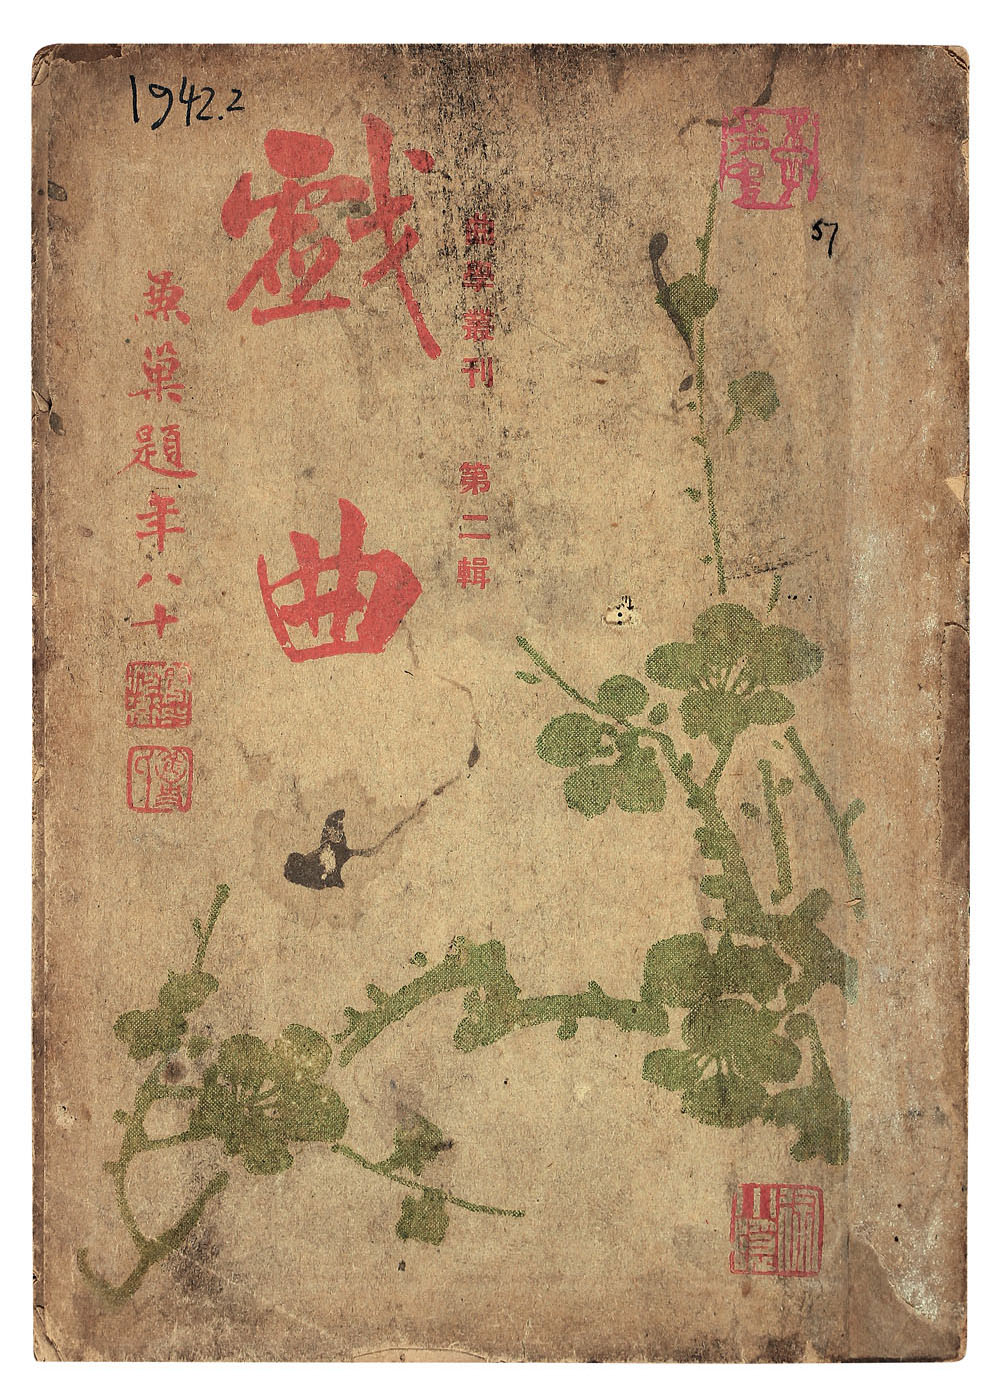 1942.2
57
曲學叢刊 第二輯
戲曲
兼巢題年八十